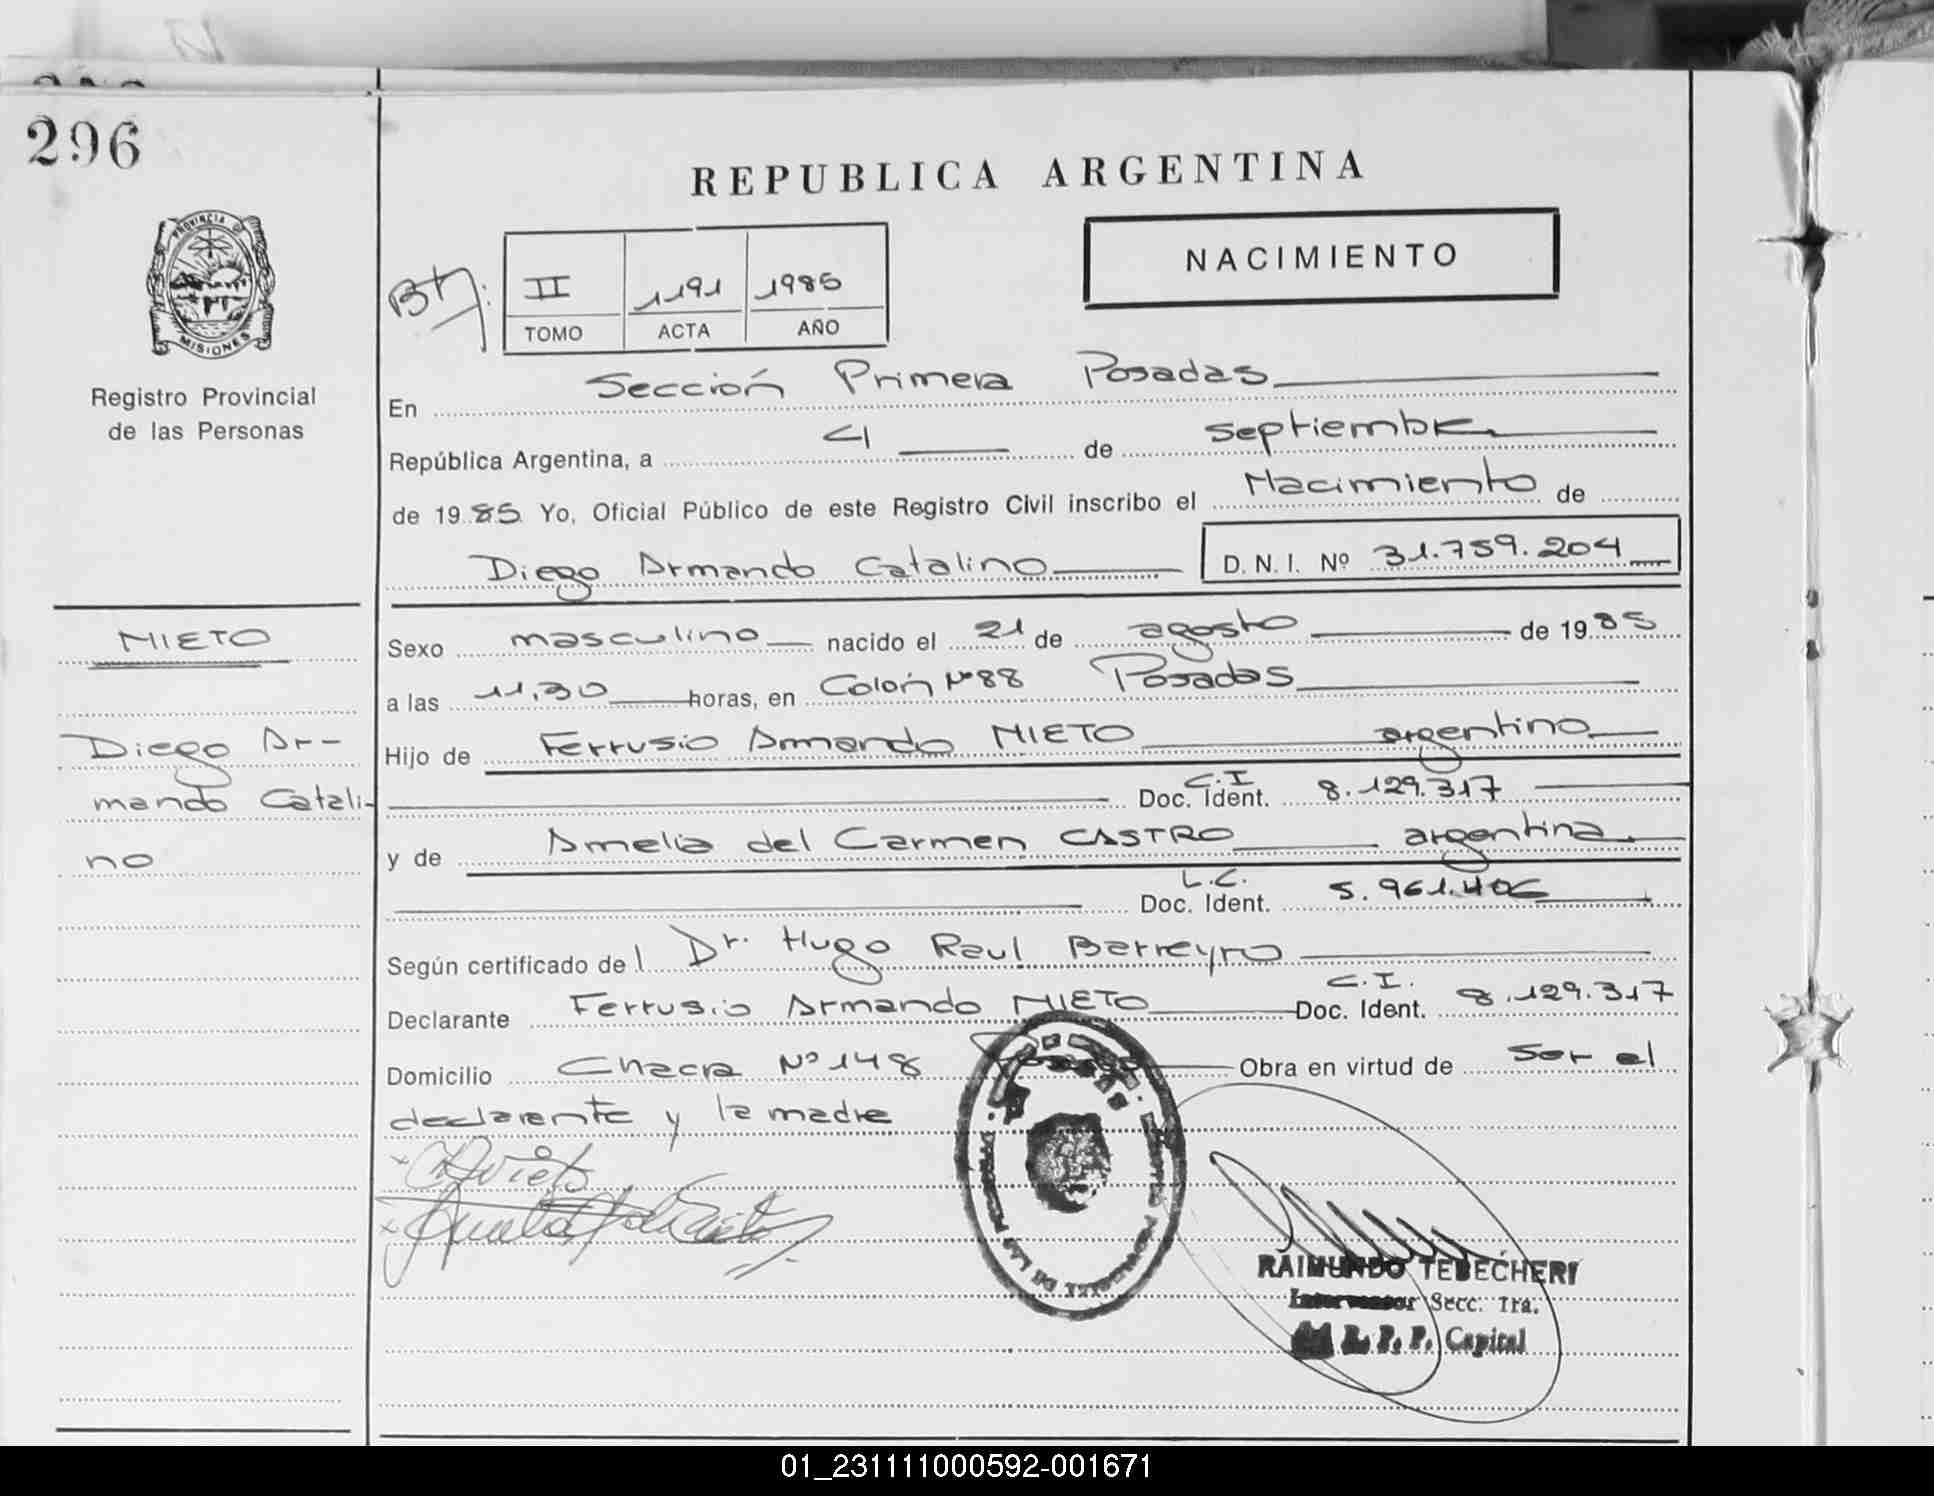 296
REPUBLICA ARGENTINA
PROVINCIA DE MISIONES
Registro Provincial
de las Personas
II 1191 1985
TOMO ACTA AÑO
NACIMIENTO
En Sección Primera Posadas
República Argentina, a 4 de septiembre
de 1985 Yo, Oficial Público de este Registro Civil inscribo el Nacimiento de
Diego Armando Catalino D.N.I. Nº 31.759.204
NIETO
Diego Ar-
mando Catali-
no
Sexo masculino nacido el 21 de agosto de 1985
a las 11,30 horas, en Colón Nº 88 Posadas
Hijo de Ferrusio Armando NIETO argentino
C.I
Doc. Ident. 8.129.317
y de Amelia del Carmen CASTRO argentina
L.C.
Doc. Ident. 5.961.406
Según certificado del Dr. Hugo Raul Barreyro
C.I.
Declarante Ferrusio Armando NIETO Doc. Ident. 8.129.317
Domicilio Chacra Nº 148 Obra en virtud de ser el
declarante y la madre
RAIMUNDO TEBECHERI
Interventor Secc. 1ra.
R. P. P. Capital
01_231111000592-001671